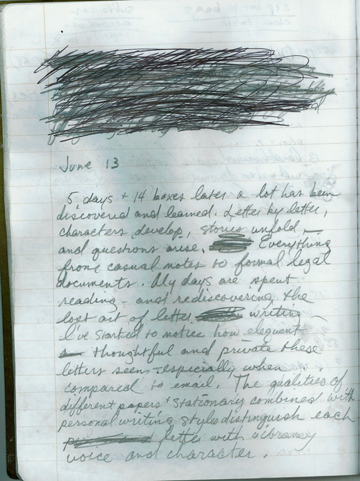 June 13
5 days + 14 boxes later a lot has been
discovered and learned. Letter by letter,
characters develop, stories unfold
and questions arise. Everything
from casual notes to formal legal
documents. My days are spent
reading - and rediscovering the
lost art of letter writing -
I've started to notice how eloquent
thoughtful and private these
letters seem - especially when
compared to email. The qualities of
different papers + stationary combined with
personal writing styles distinguish each
letter with vibrancy
voice and character.